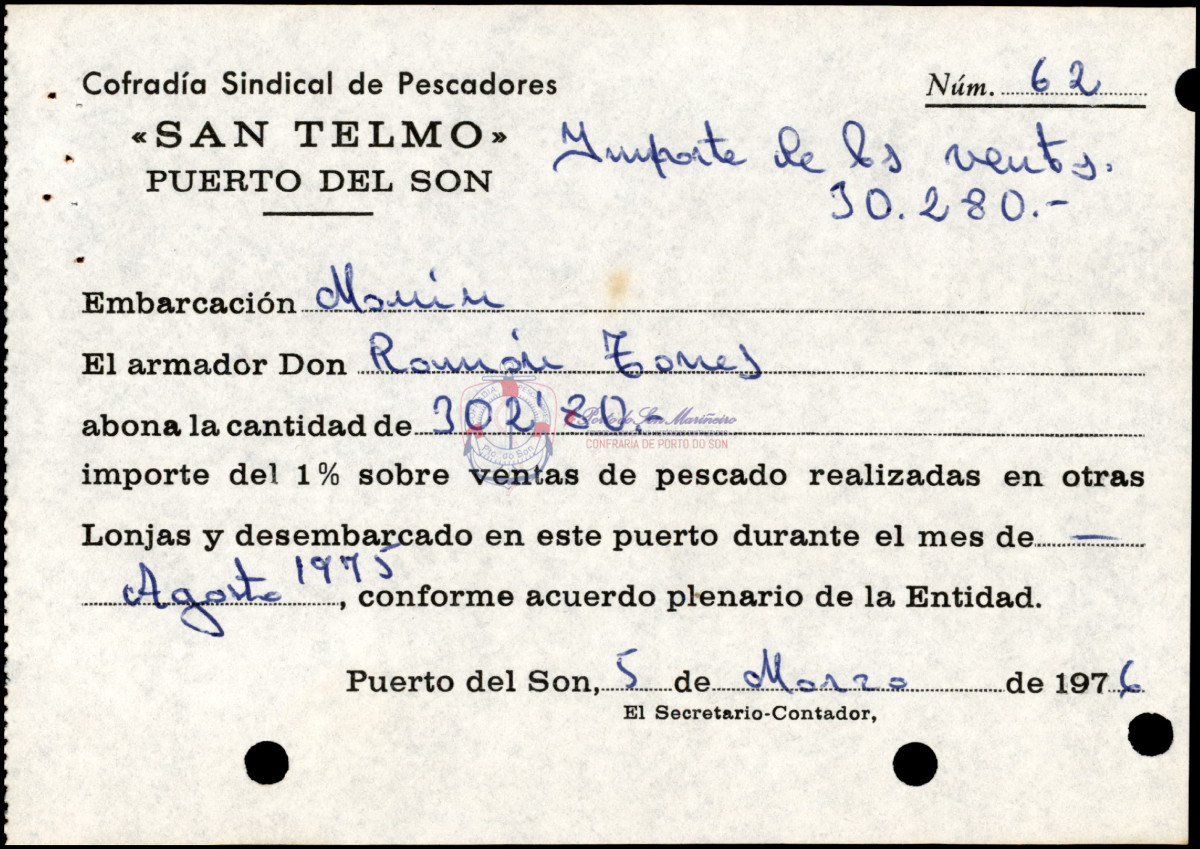 Cofradía Sindical de Pescadores
«SAN TELMO»
PUERTO DEL SON
Núm. 62
Importe de las ventas.
30.280.-
Embarcación
El armador Don Ramón Torres
abona la cantidad de 302'80.-
Porto do Son Mariñeiro
CONFRARÍA DE PORTO DO SON
Pto. do Son
importe del 1% sobre ventas de pescado realizadas en otras
Lonjas y desembarcado en este puerto durante el mes de —
Agosto 1975, conforme acuerdo plenario de la Entidad.
Puerto del Son, 5 de Marzo de 1976
El Secretario-Contador,